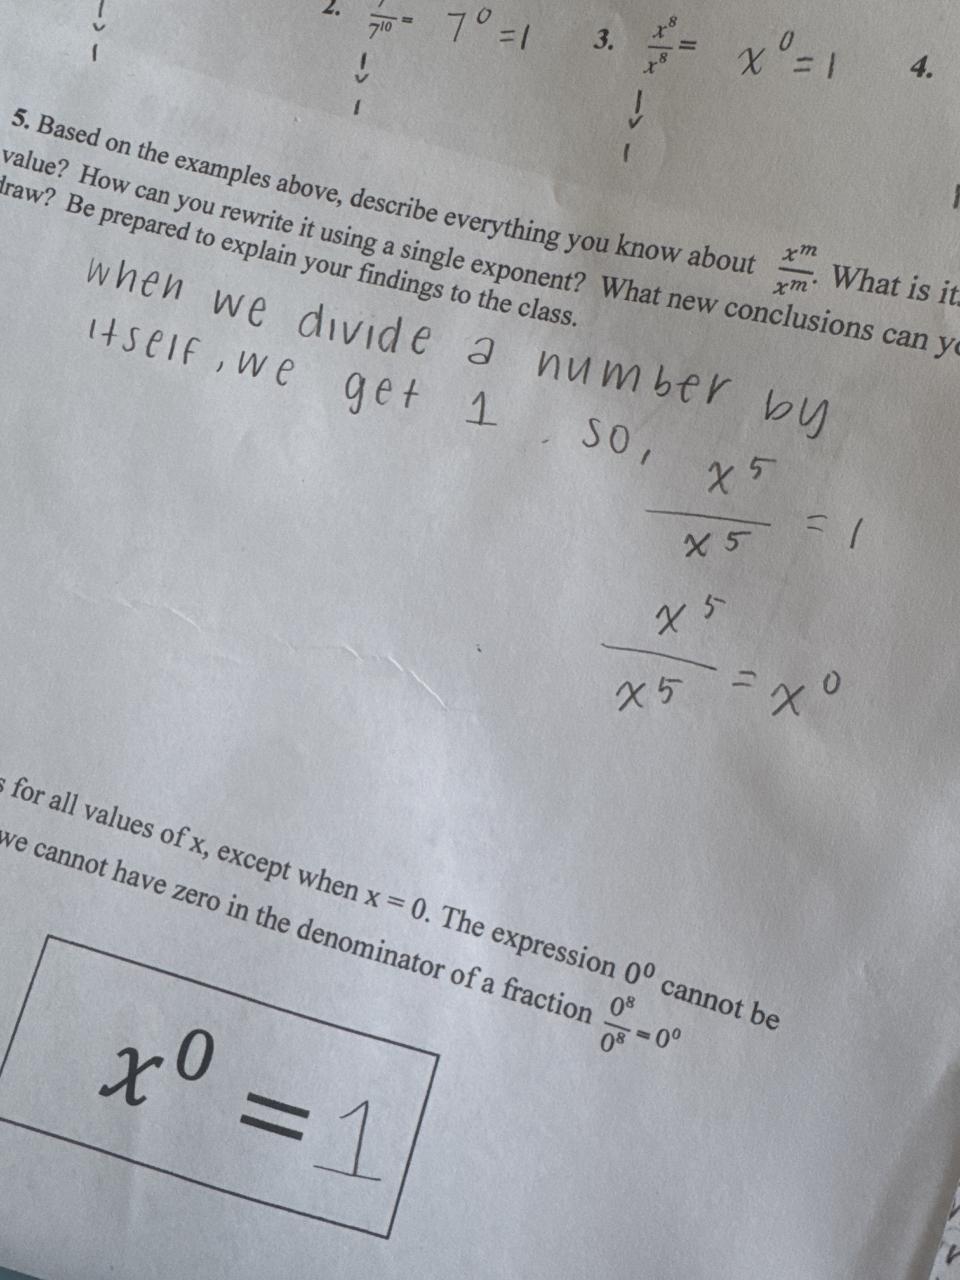 2. 7^10 = 7^0 = 1
3. x^8/x^8 = x^0 = 1
4.
1
1
1
5. Based on the examples above, describe everything you know about x^m/x^m. What is it
value? How can you rewrite it using a single exponent? What new conclusions can
draw? Be prepared to explain your findings to the class.
when we divide a number by
itself, we get 1. so,
x^5/x^5 = 1
x^5/x^5 = x^0
for all values of x, except when x = 0. The expression 0^0 cannot be
we cannot have zero in the denominator of a fraction 0^8/0^8 = 0^0
x^0 = 1